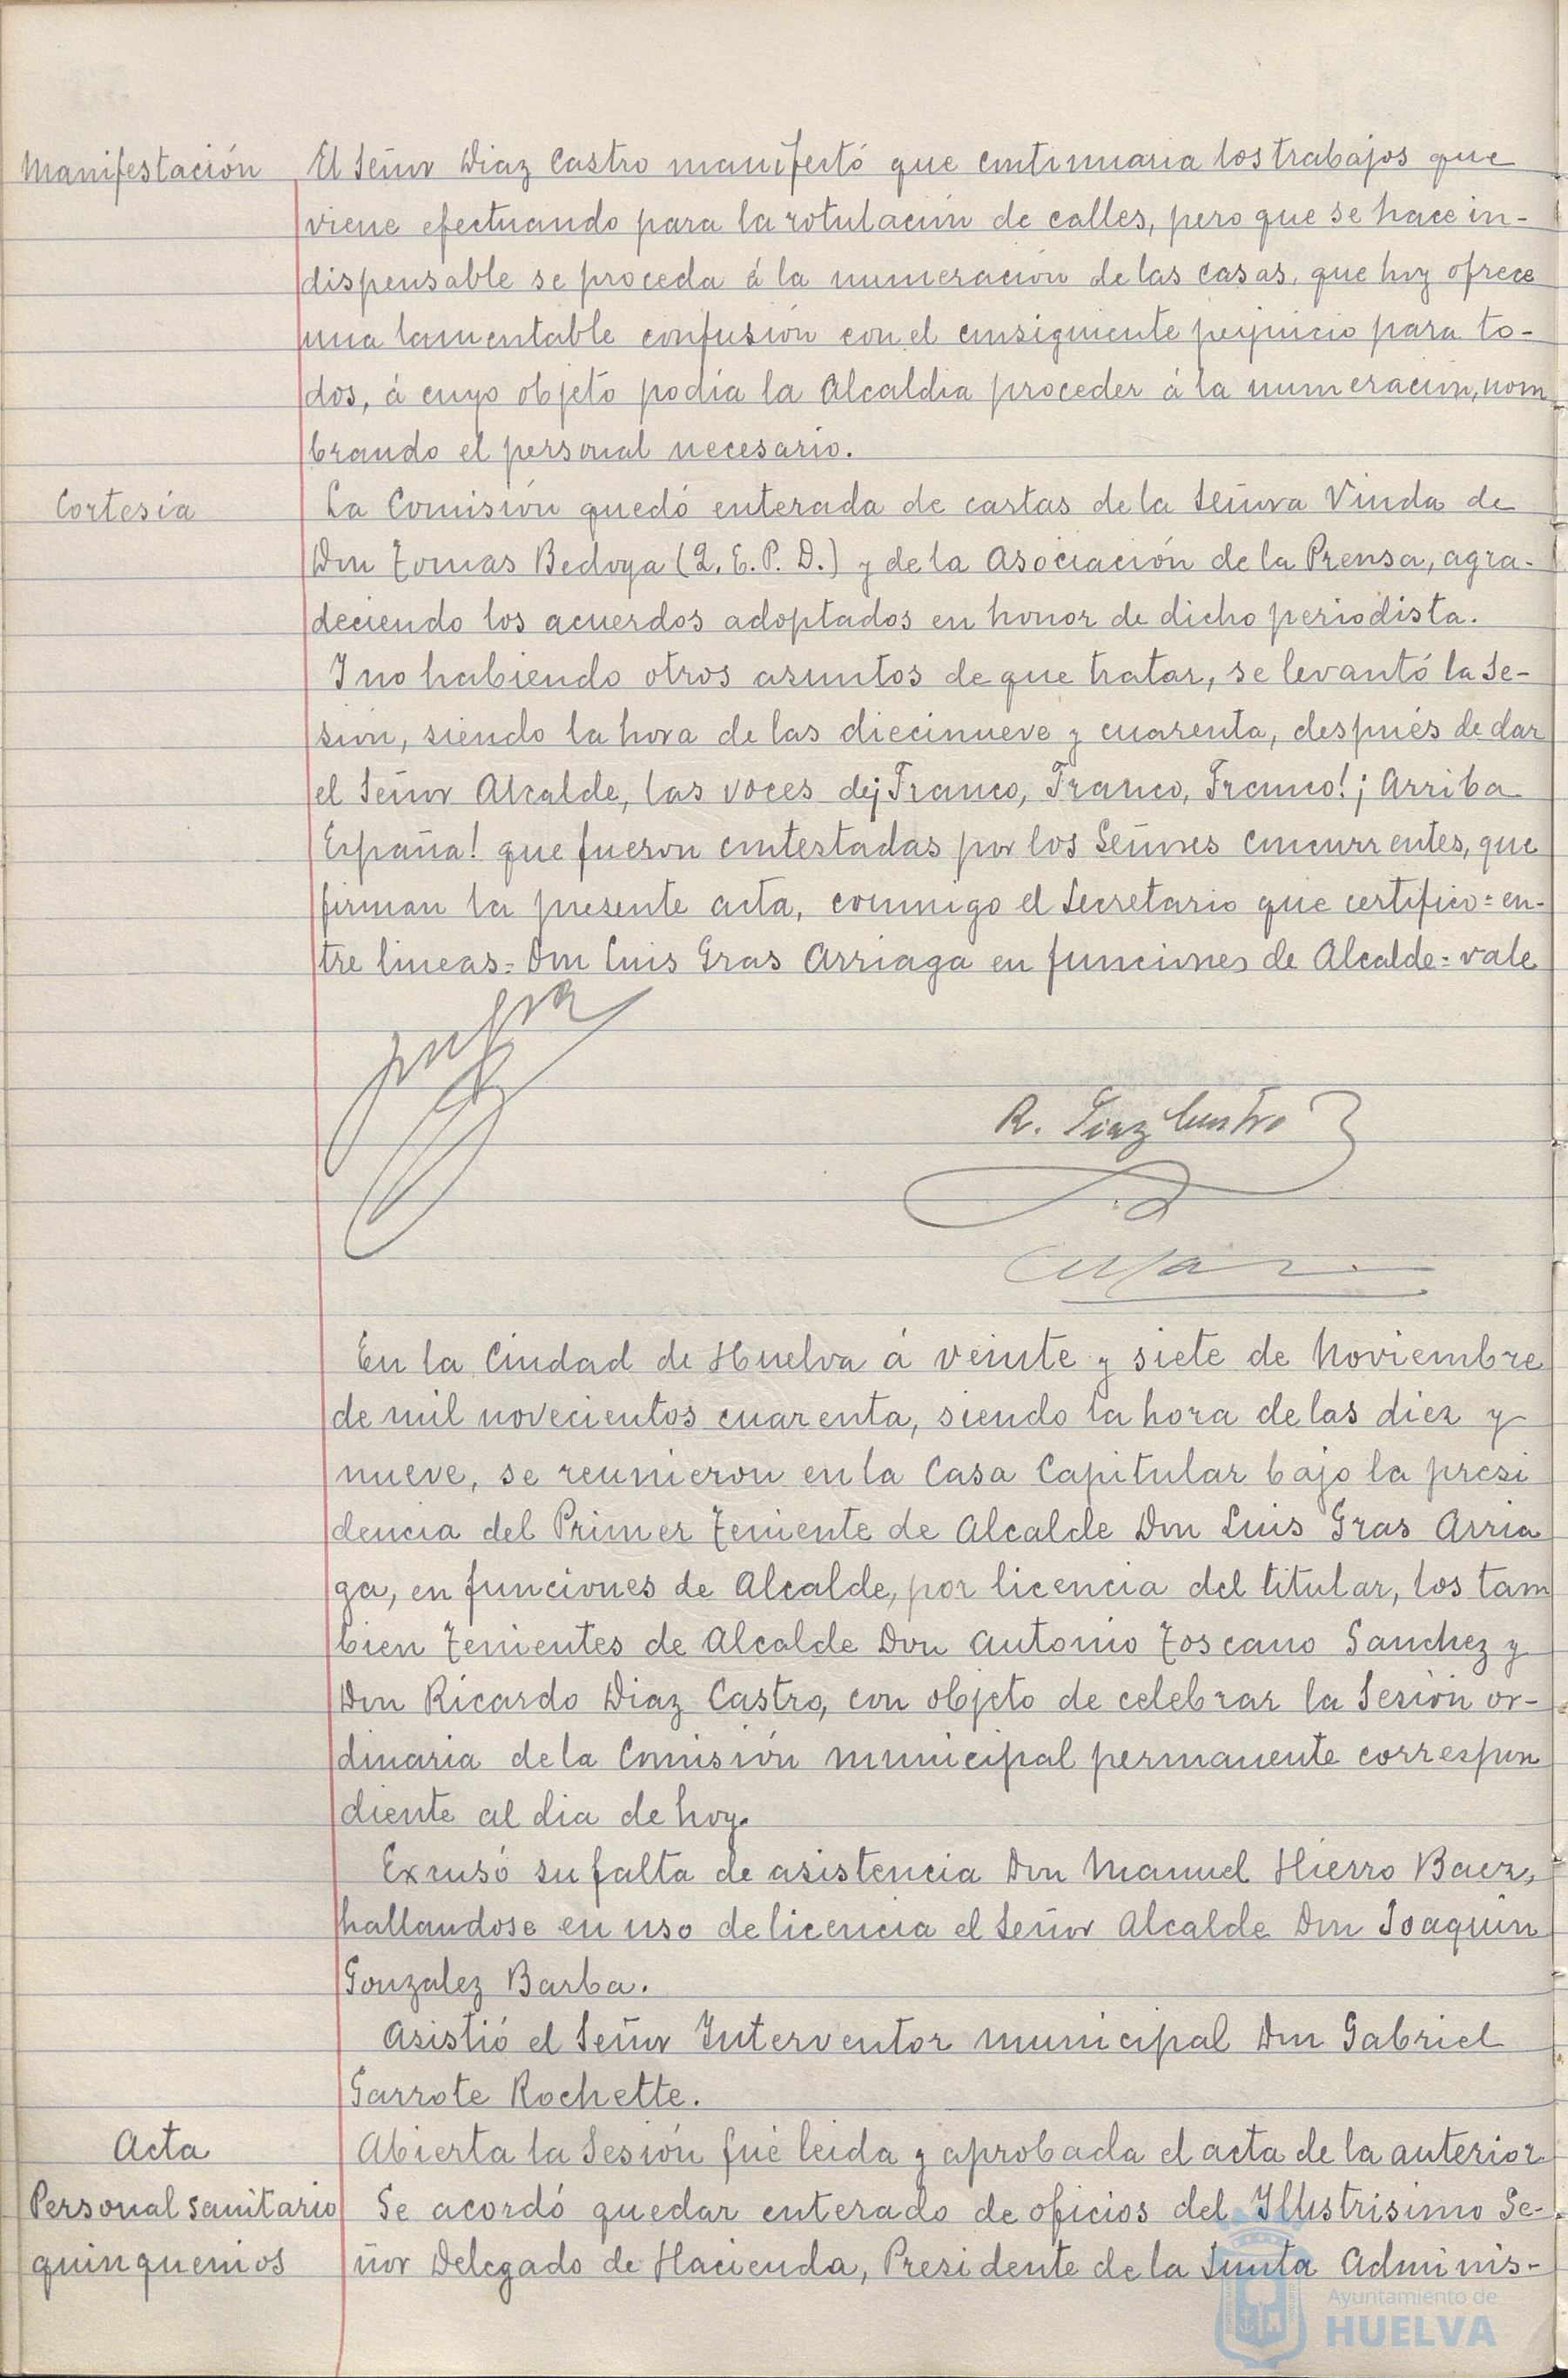 Manifestación El Señor Diaz Castro manifestó que continuaria los trabajos que
viene efectuando para la rotulación de calles, pero que se hace in-
dispensable se proceda á la numeración de las casas, que hoy ofrece
una lamentable confusión con el consiguiente perjuicio para to-
dos, á cuyo objeto podia la Alcaldia proceder á la numeracion, nom
brando el personal necesario.
Cortesia La Comisión quedó enterada de cartas de la Señora Viuda de
Don Tomas Bedoya (Q. E. P. D.) y de la Asociación de la Prensa, agra-
deciendo los acuerdos adoptados en honor de dicho periodista.
Y no habiendo otros asuntos de que tratar, se levantó la Se-
sion, siendo la hora de las diecinueve y cuarenta, después de dar
el Señor Alcalde, las voces de ¡Franco, Franco, Franco! ¡Arriba
España! que fueron contestadas por los Señores concurrentes, que
firman la presente acta, conmigo el Secretario que certifico = en-
tre lineas = Don Luis Gras Arriaga en funciones de Alcalde = vale
R. Diaz Castro
En la Ciudad de Huelva á veinte y siete de Noviembre
de mil novecientos cuarenta, siendo la hora de las diez y
nueve, se reunieron en la Casa Capitular bajo la presi
dencia del Primer Teniente de Alcalde Don Luis Gras Arria
ga, en funciones de Alcalde, por licencia del titular, los tam
bien Tenientes de Alcalde Don Antonio Toscano Sanchez y
Don Ricardo Diaz Castro, con objeto de celebrar la Sesión or-
dinaria de la Comisión municipal permanente correspon
diente al dia de hoy.
Excusó su falta de asistencia Don Manuel Hierro Baez,
hallandose en uso de licencia el Señor Alcalde Don Joaquin
Gonzalez Barba.
Asistió el Señor Interventor municipal Don Gabriel
Garrote Rochette.
Acta Abierta la Sesión fué leida y aprobada el acta de la anterior
Personal sanitario Se acordó quedar enterado de oficios del Illustrisimo Se-
quinquenios ñor Delegado de Hacienda, Presidente de la Junta Adminis-
Ayuntamiento de
HUELVA